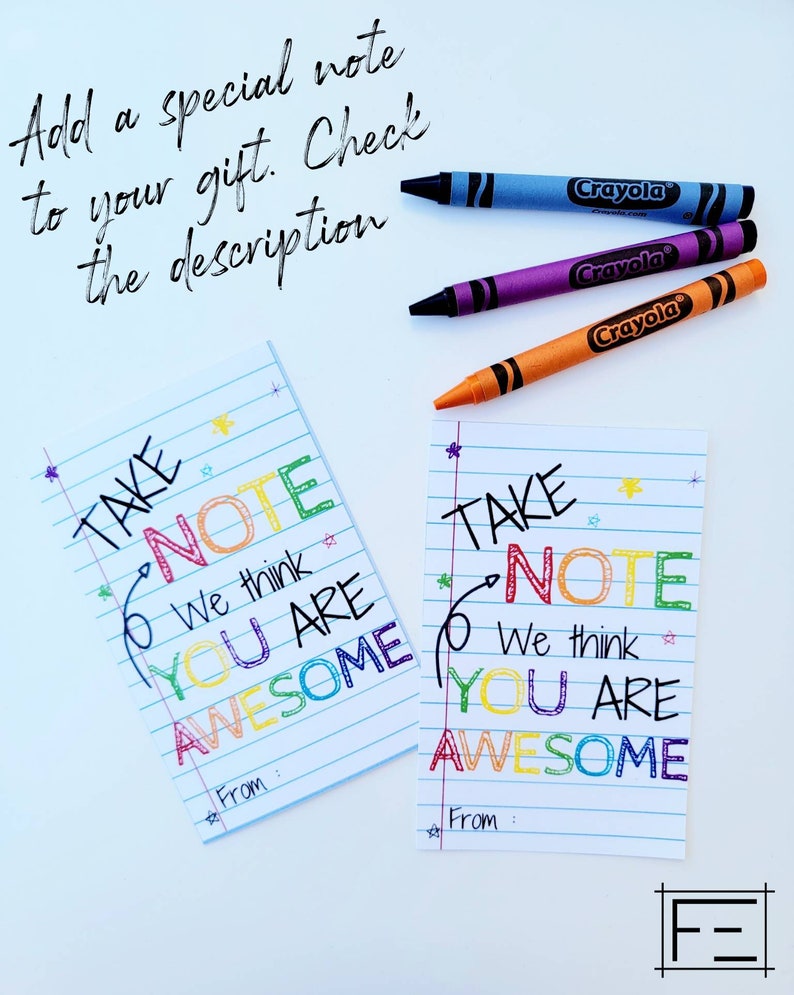 Add a special note
to your gift. Check
the description
Crayola®
Crayola.com
Crayola®
Crayola®
TAKE
NOTE
We think
YOU ARE
AWESOME
From :
TAKE
NOTE
We think
YOU ARE
AWESOME
From :
FE